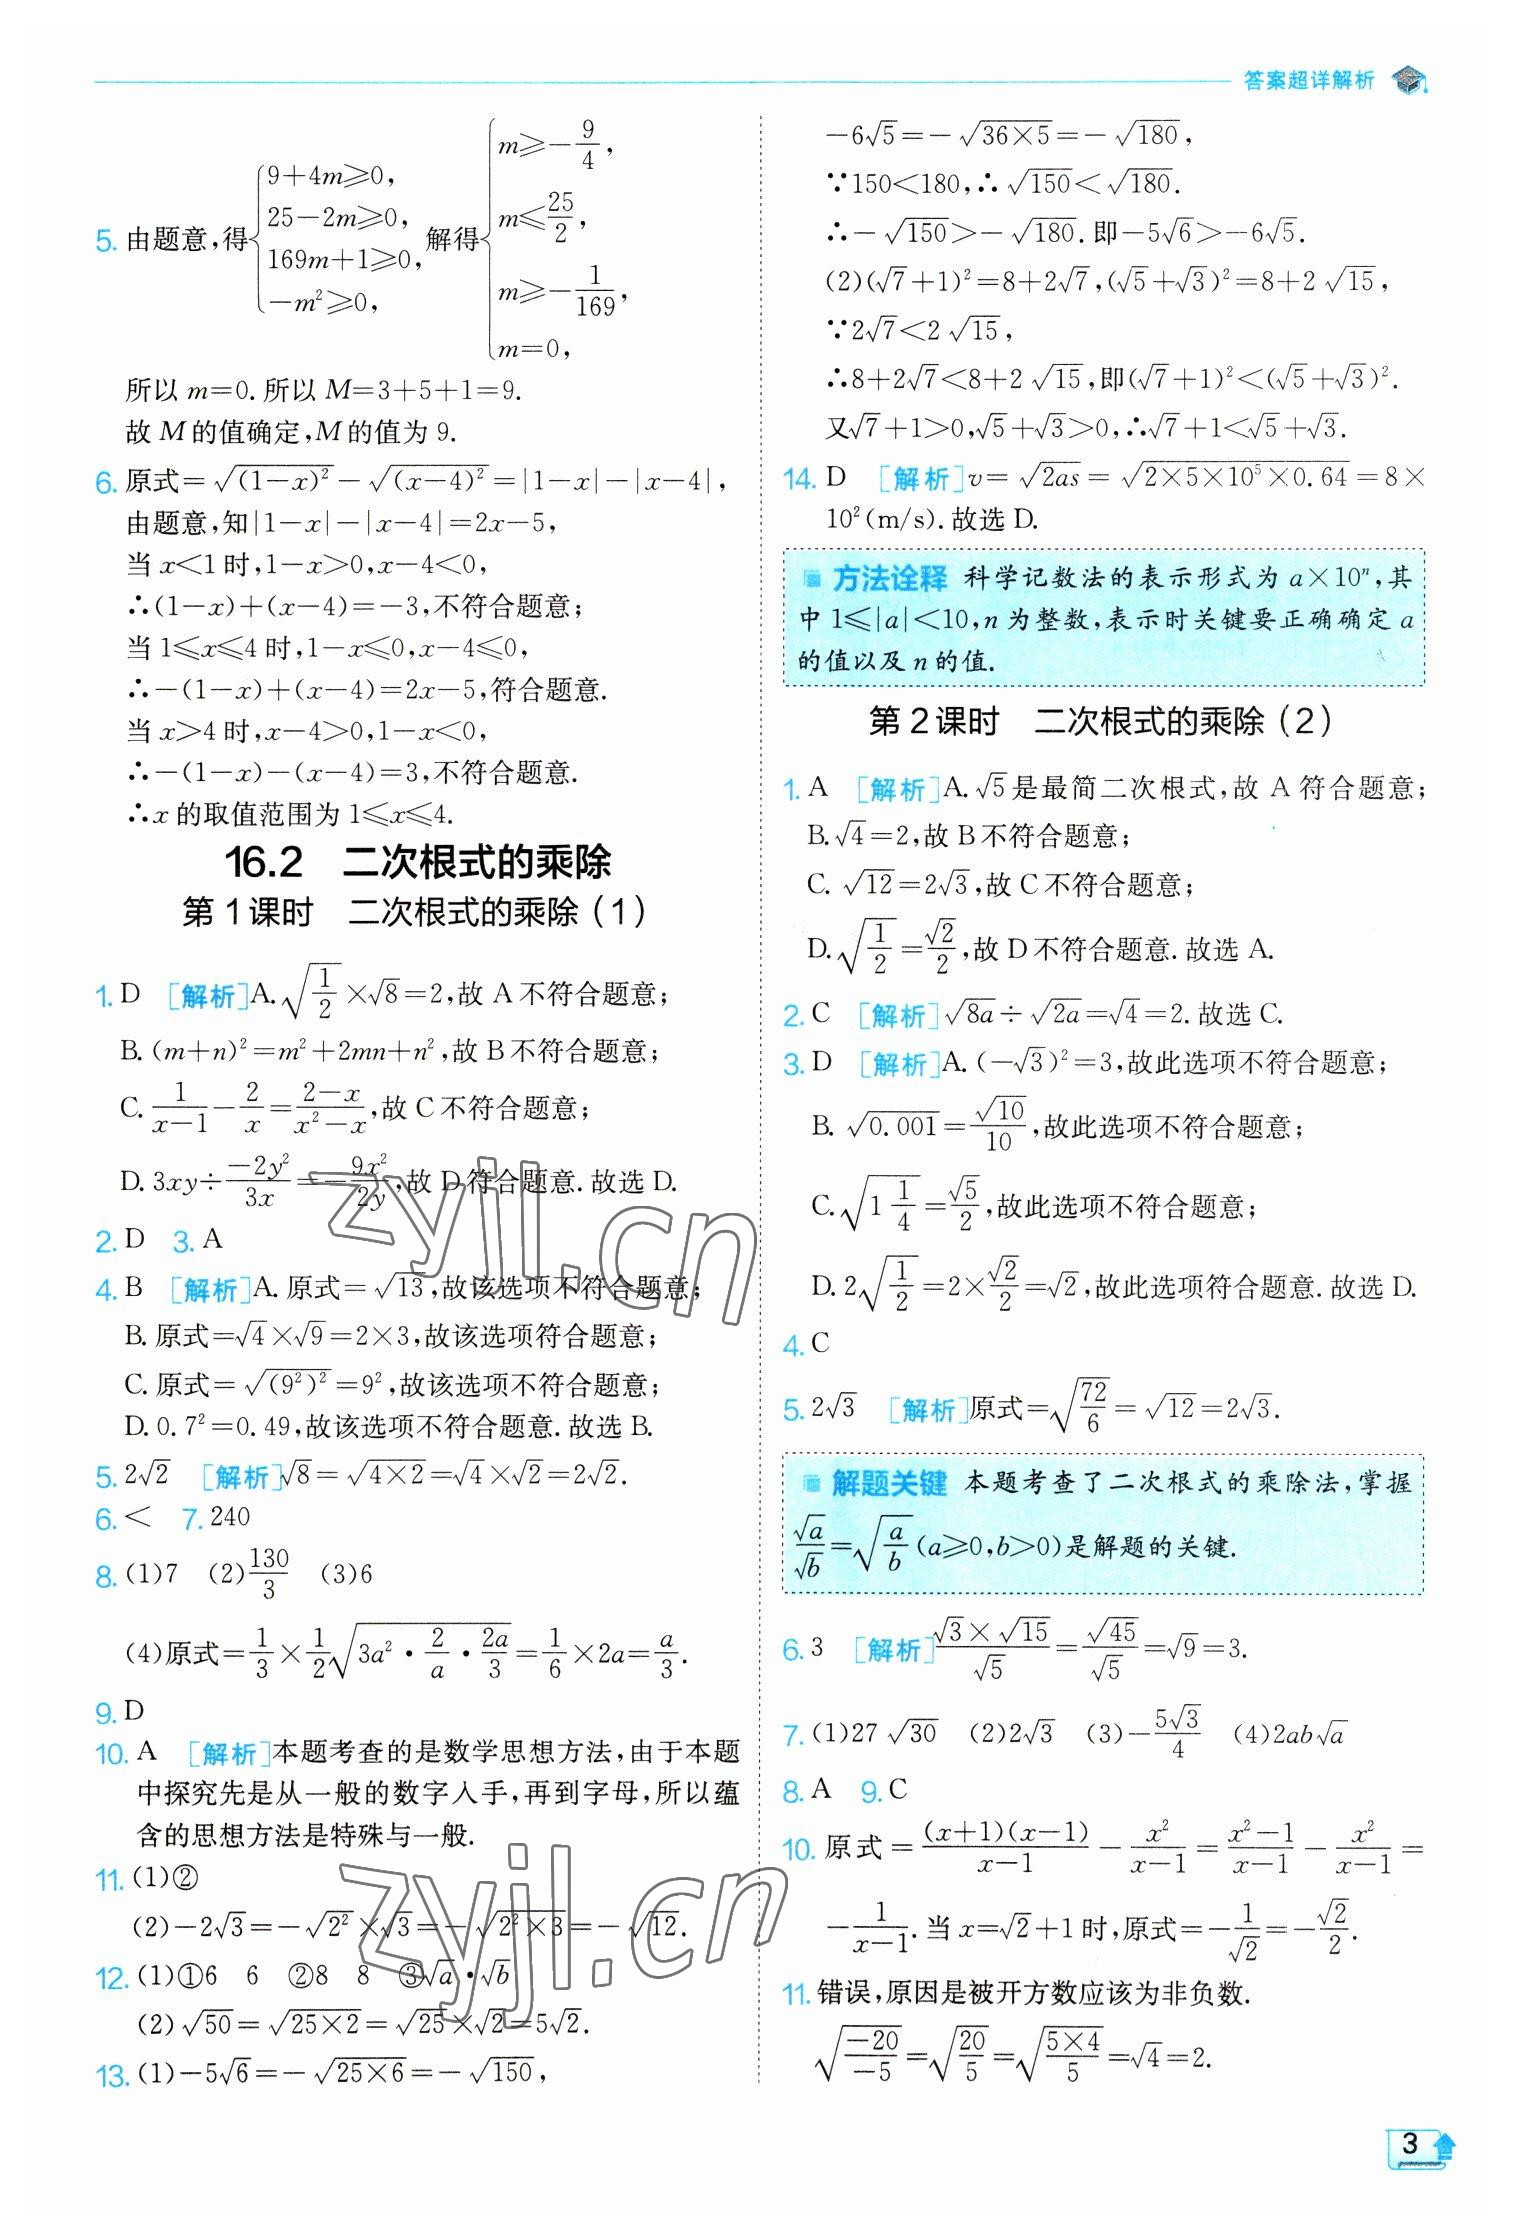 答案超详解析
5. 由题意,得{9+4m⩾0, 25-2m⩾0, 169m+1⩾0, -m²⩾0, 解得{m⩾-9/4, m⩽25/2, m⩾-1/169, m=0,
所以 m=0. 所以 M=3+5+1=9.
故 M 的值确定,M 的值为 9.
6. 原式=√((1-x)²)-√((x-4)²)=|1-x|-|x-4|,
由题意,知|1-x|-|x-4|=2x-5,
当 x<1 时,1-x>0,x-4<0,
∴(1-x)+(x-4)=-3,不符合题意;
当 1⩽x⩽4 时,1-x⩽0,x-4⩽0,
∴-(1-x)+(x-4)=2x-5,符合题意.
当 x>4 时,x-4>0,1-x<0,
∴-(1-x)-(x-4)=3,不符合题意.
∴x 的取值范围为 1⩽x⩽4.
16.2 二次根式的乘除
第 1 课时 二次根式的乘除(1)
1. D [解析]A. √(1/2)×√8=2,故 A 不符合题意;
B. (m+n)²=m²+2mn+n²,故 B 不符合题意;
C. 1/(x-1)-2/x=(2-x)/(x²-x),故 C 不符合题意;
D. 3xy÷(-2y²)/(3x)=-9x²/(2y),故 D 符合题意. 故选 D.
2. D 3. A
4. B [解析]A. 原式=√13,故该选项不符合题意;
B. 原式=√4×√9=2×3,故该选项符合题意;
C. 原式=√((9²)²)=9²,故该选项不符合题意;
D. 0.7²=0.49,故该选项不符合题意. 故选 B.
5. 2√2 [解析]√8=√(4×2)=√4×√2=2√2.
6. < 7. 240
8. (1)7 (2)130/3 (3)6
(4)原式=1/3×1/2√(3a²·2/a·2a/3)=1/6×2a=a/3.
9. D
10. A [解析]本题考查的是数学思想方法,由于本题
中探究先是从一般的数字入手,再到字母,所以蕴
含的思想方法是特殊与一般.
11. (1)②
(2)-2√3=-√(2²)×√3=-√(2²×3)=-√12.
12. (1)①6 6 ②8 8 ③√a·√b
(2)√50=√(25×2)=√25×√2=5√2.
13. (1)-5√6=-√(25×6)=-√150,
-6√5=-√(36×5)=-√180,
∵150<180,∴√150<√180.
∴-√150>-√180. 即-5√6>-6√5.
(2)(√7+1)²=8+2√7,(√5+√3)²=8+2√15,
∵2√7<2√15,
∴8+2√7<8+2√15,即(√7+1)²<(√5+√3)².
又√7+1>0,√5+√3>0,∴√7+1<√5+√3.
14. D [解析]v=√(2as)=√(2×5×10⁵×0.64)=8×
10²(m/s). 故选 D.
方法诠释 科学记数法的表示形式为 a×10ⁿ,其
中 1⩽|a|<10,n 为整数,表示时关键要正确确定 a
的值以及 n 的值.
第 2 课时 二次根式的乘除(2)
1. A [解析]A. √5是最简二次根式,故 A 符合题意;
B. √4=2,故 B 不符合题意;
C. √12=2√3,故 C 不符合题意;
D. √(1/2)=√2/2,故 D 不符合题意. 故选 A.
2. C [解析]√(8a)÷√(2a)=√4=2. 故选 C.
3. D [解析]A. (-√3)²=3,故此选项不符合题意;
B. √0.001=√10/10,故此选项不符合题意;
C. √(1 1/4)=√5/2,故此选项不符合题意;
D. 2√(1/2)=2×√2/2=√2,故此选项符合题意. 故选 D.
4. C
5. 2√3 [解析]原式=√(72/6)=√12=2√3.
解题关键 本题考查了二次根式的乘除法,掌握
√a/√b=√(a/b)(a⩾0,b>0)是解题的关键.
6. 3 [解析](√3×√15)/√5=√45/√5=√9=3.
7. (1)27√30 (2)2√3 (3)-5√3/4 (4)2ab√a
8. A 9. C
10. 原式=(x+1)(x-1)/(x-1)-x²/(x-1)=(x²-1)/(x-1)-x²/(x-1)=
-1/(x-1). 当 x=√2+1 时,原式=-1/√2=-√2/2.
11. 错误,原因是被开方数应该为非负数.
√(-20/-5)=√(20/5)=√((5×4)/5)=√4=2.
3
zyjl.cn
zyjl.cn